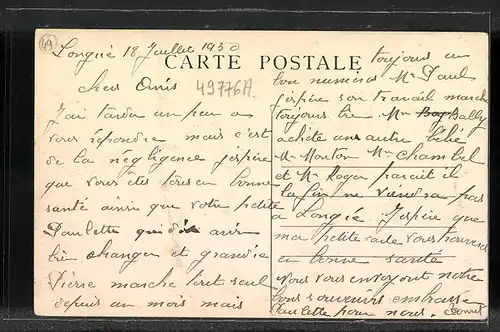 49
Longué 18 Juillet 1930
CARTE POSTALE
49776A.
chers Amis
J'ai tardé un peu a
vous répondre mais c'est
de la négligence j'espère
que vous êtes tous en bonne
santé ainsi que votre petite
Paulette qui doit avoir
bien changer et grandie
Pierre marche tout seul
depuis un mois mais
toujours un
bon numéros Mr Paul
j'espère son travail marche
toujours bien Mme Bally
achète un autre bébé
Mr Mouton Mme Chambel
et Mr Roger parait il
la fin ne viendra pas
a Longué. J'espère que
ma petite carte vous trouvera
en bonne santé
Nous vous envoyont notre
bons souvenirs embrasse
Paulette pour nous.